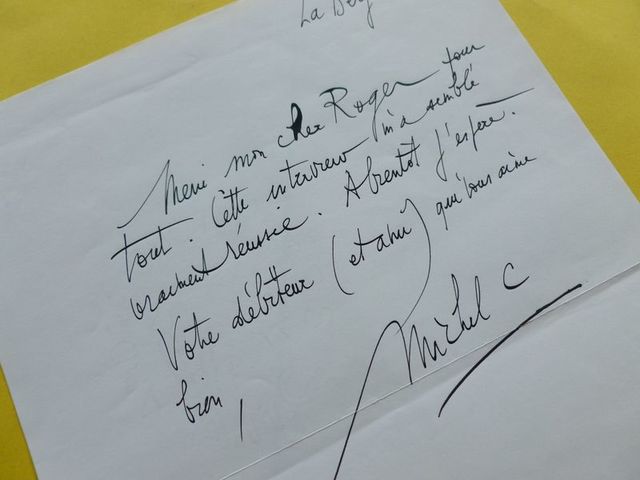 La Ber
Merci mon cher Roger pour
tout. Cette interview m'a semblé
vraiment réussie. A bientôt j'espère.
Votre débiteur (et ami) qui vous aime
bien,
Michel C